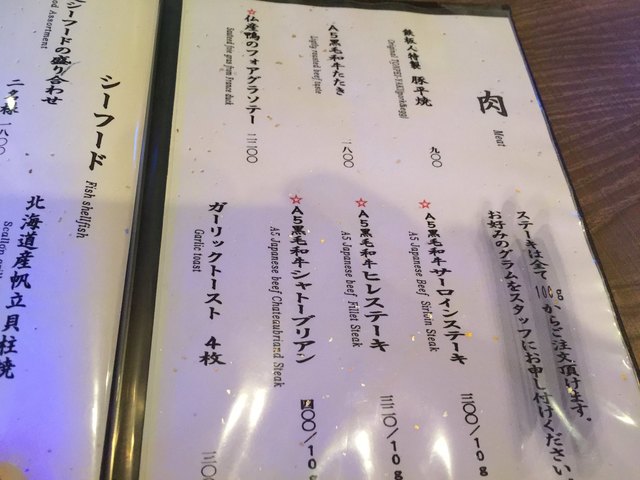 肉
Meat
鉄板人特製 豚平焼
九〇〇
A5黒毛和牛たたき
Lightly roasted beef taste
一八〇〇
☆仏産鴨のフォアグラソテー
Sauteed foie gras from France duck
三三〇〇
ステーキは全て100gからご注文頂けます。
お好みのグラムをスタッフにお申し付けください。
☆A5黒毛和牛サーロインステーキ
A5 Japanese Beef Sirloin Steak
/10g
☆A5黒毛和牛ヒレステーキ
A5 Japanese beef Fillet Steak
/10g
☆A5黒毛和牛シャトーブリアン
A5 Japanese beef Chateaubriand Steak
/10g
ガーリックトースト 4枚
Garlic toast
シーフード
Fish shellfish
シーフードの盛り合わせ
Assortment
二名様 一八〇〇
北海道産帆立貝柱焼
Scallop